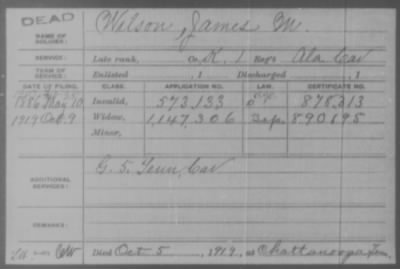 DEAD
Wilson, James M.
NAME OF SOLDIER:
SERVICE: Late rank, Co. K, 1 Reg't Ala Cav
TERM OF SERVICE: Enlisted , 1 Discharged , 1
DATE OF FILING. CLASS. APPLICATION NO. LAW. CERTIFICATE NO.
1886 May 10 Invalid, 573,133 878,213
1919 Oct. 9 Widow, 1,147,306 890195
Minor,
ADDITIONAL SERVICES: G. 5. Tenn Cav
REMARKS:
Died Oct 5, 1919, at Chattanooga Tenn